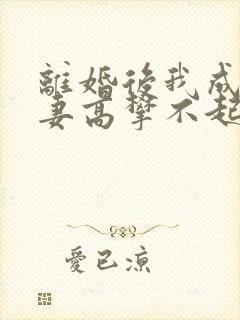 離婚後我成
妻高攀不起
愛已涼